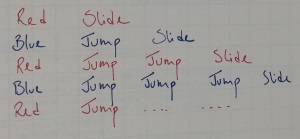 Red Slide
Blue Jump Slide
Red Jump Jump Slide
Blue Jump Jump Jump Slide
Red Jump ..... .....